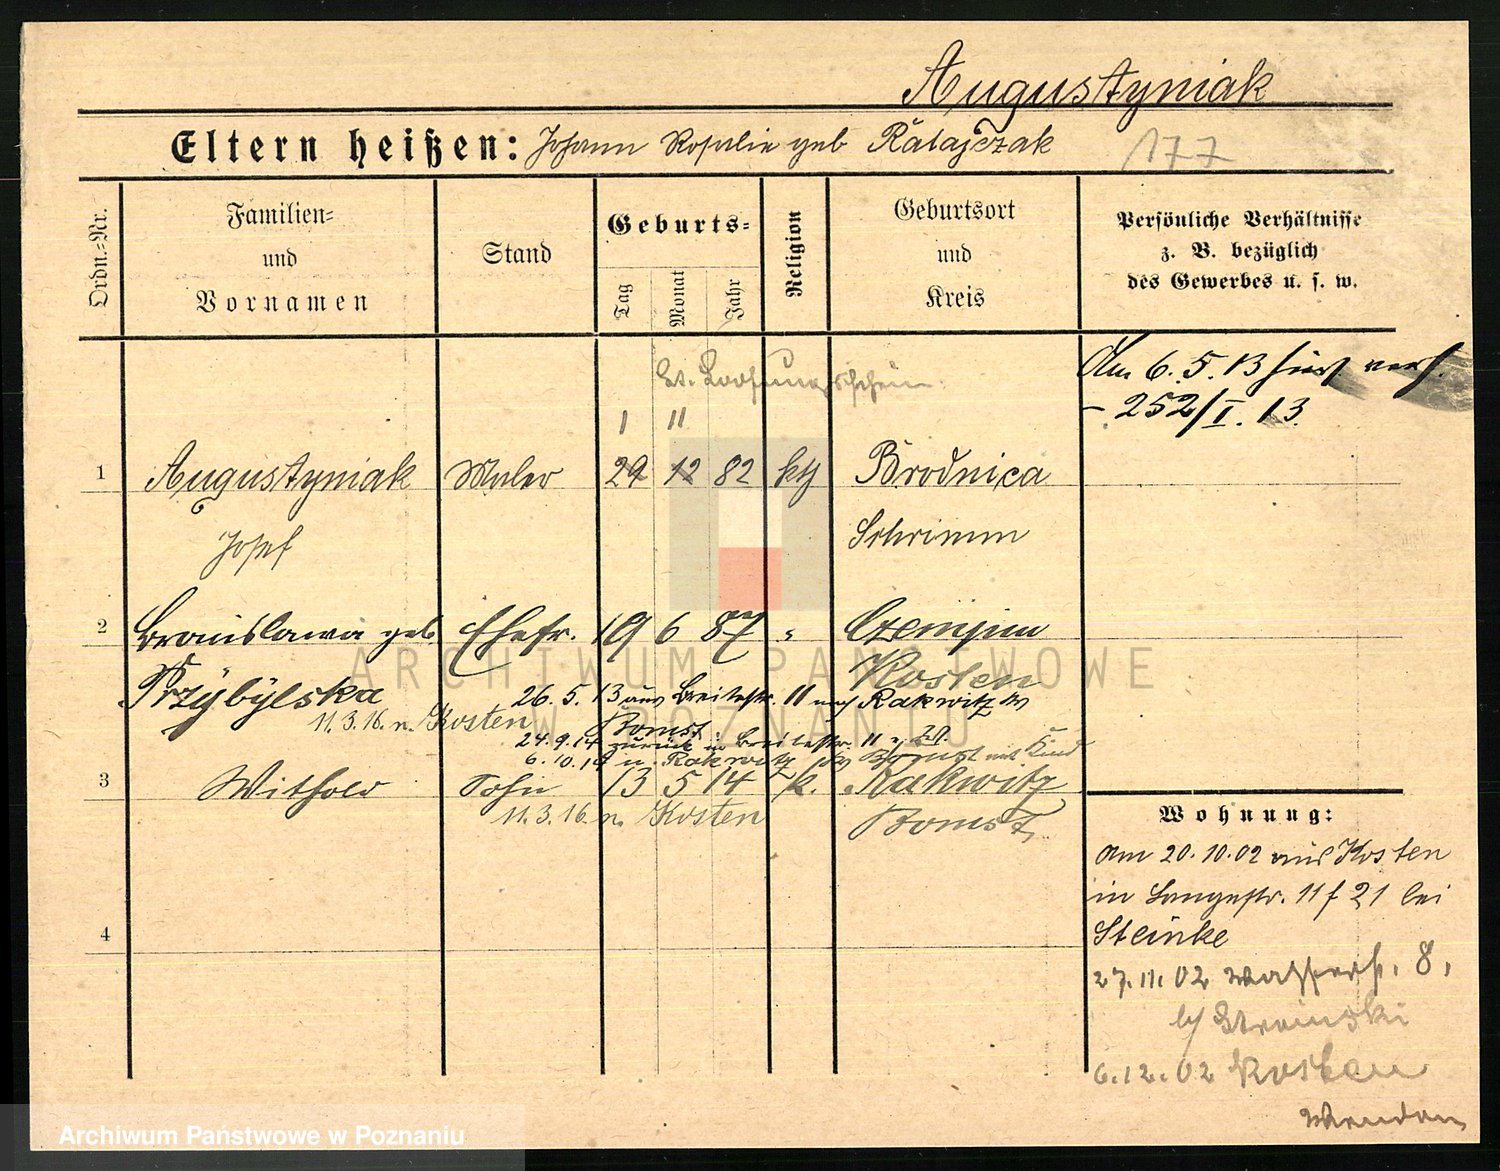 Augustyniak
Eltern heißen: Johann Rosalie geb Ratajczak 177
Ordn.=Nr.
Familien=
und
Vornamen
Stand
Geburts=
Tag
Monat
Jahr
Religion
Geburtsort
und
Kreis
Persönliche Verhältnisse
z. B. bezüglich
des Gewerbes u. s. w.
Am 6.5.13 hier verh.
– 252/I. 13.
lt. Loosungsschein.
1 11
1 Augustyniak Maler 29 12 82 kth Brodnica
Josef Schrimm
2 Bronislawa geb Ehefr. 19 6 87 " Czempin
Przybylska Kosten
26.5.13 aus Breitestr. 11 nach Rakwitz Kr
Bomst
11.3.16. n. Kosten
24.9.14 zurück in Breitestr. 11
6.10.14 n. Rakwitz Kr Bomst mit Kind
3 Withold Sohn 13 5 14 k. Rakwitz
11.3.16. n. Kosten Bomst
4
Wohnung:
Am 20.10.02 aus Kosten
in Langestr. 11 f 21 bei
Steinke
27.11.02 Wasserstr. 8,
6.12.02 Kosten
Wenden
ARCHIWUM PAŃSTWOWE
W POZNANIU
Archiwum Państwowe w Poznaniu